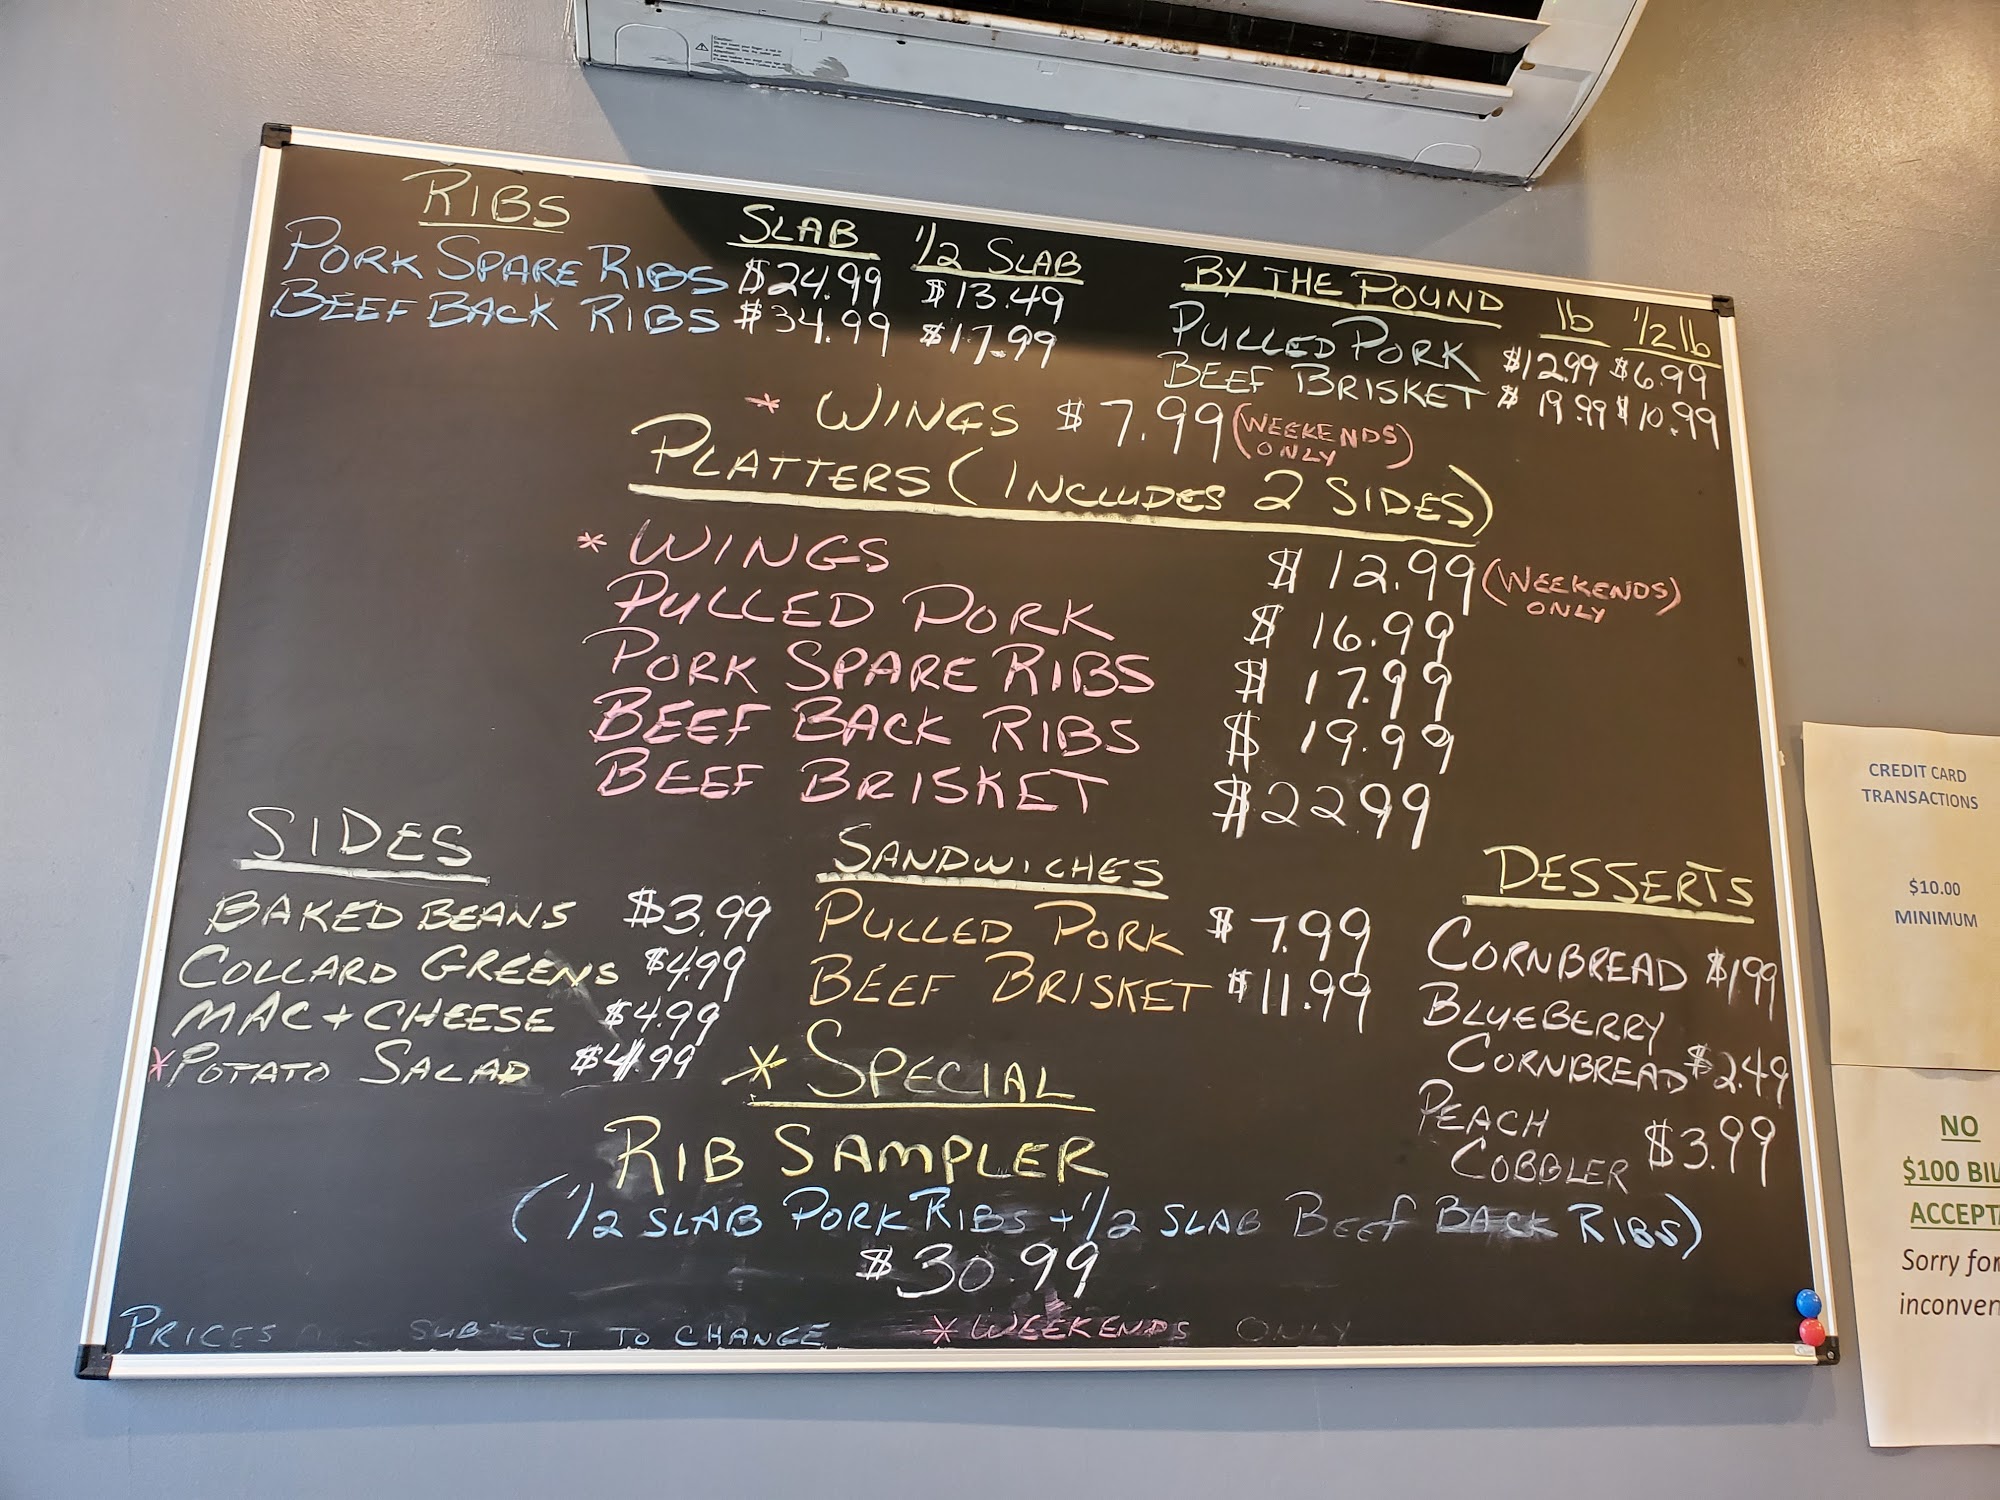 RIBS SLAB 1/2 SLAB
PORK SPARE RIBS $24.99 $13.49
BEEF BACK RIBS $34.99 $17.99
BY THE POUND lb 1/2 lb
PULLED PORK $12.99 $6.99
BEEF BRISKET $19.99 $10.99
* WINGS $7.99 (WEEKENDS ONLY)
PLATTERS (INCLUDES 2 SIDES)
* WINGS $12.99 (WEEKENDS ONLY)
PULLED PORK $16.99
PORK SPARE RIBS $17.99
BEEF BACK RIBS $19.99
BEEF BRISKET $22.99
SIDES
BAKED BEANS $3.99
COLLARD GREENS $4.99
MAC + CHEESE $4.99
* POTATO SALAD $4.99
SANDWICHES
PULLED PORK $7.99
BEEF BRISKET $11.99
DESSERTS
CORNBREAD $1.99
BLUEBERRY
CORNBREAD $2.49
PEACH
COBBLER $3.99
* SPECIAL
RIB SAMPLER
(1/2 SLAB PORK RIBS + 1/2 SLAB BEEF BACK RIBS)
$30.99
PRICES SUBJECT TO CHANGE * WEEKENDS ONLY
CREDIT CARD
TRANSACTIONS
$10.00
MINIMUM
NO
$100
ACCEPT
Sorry for